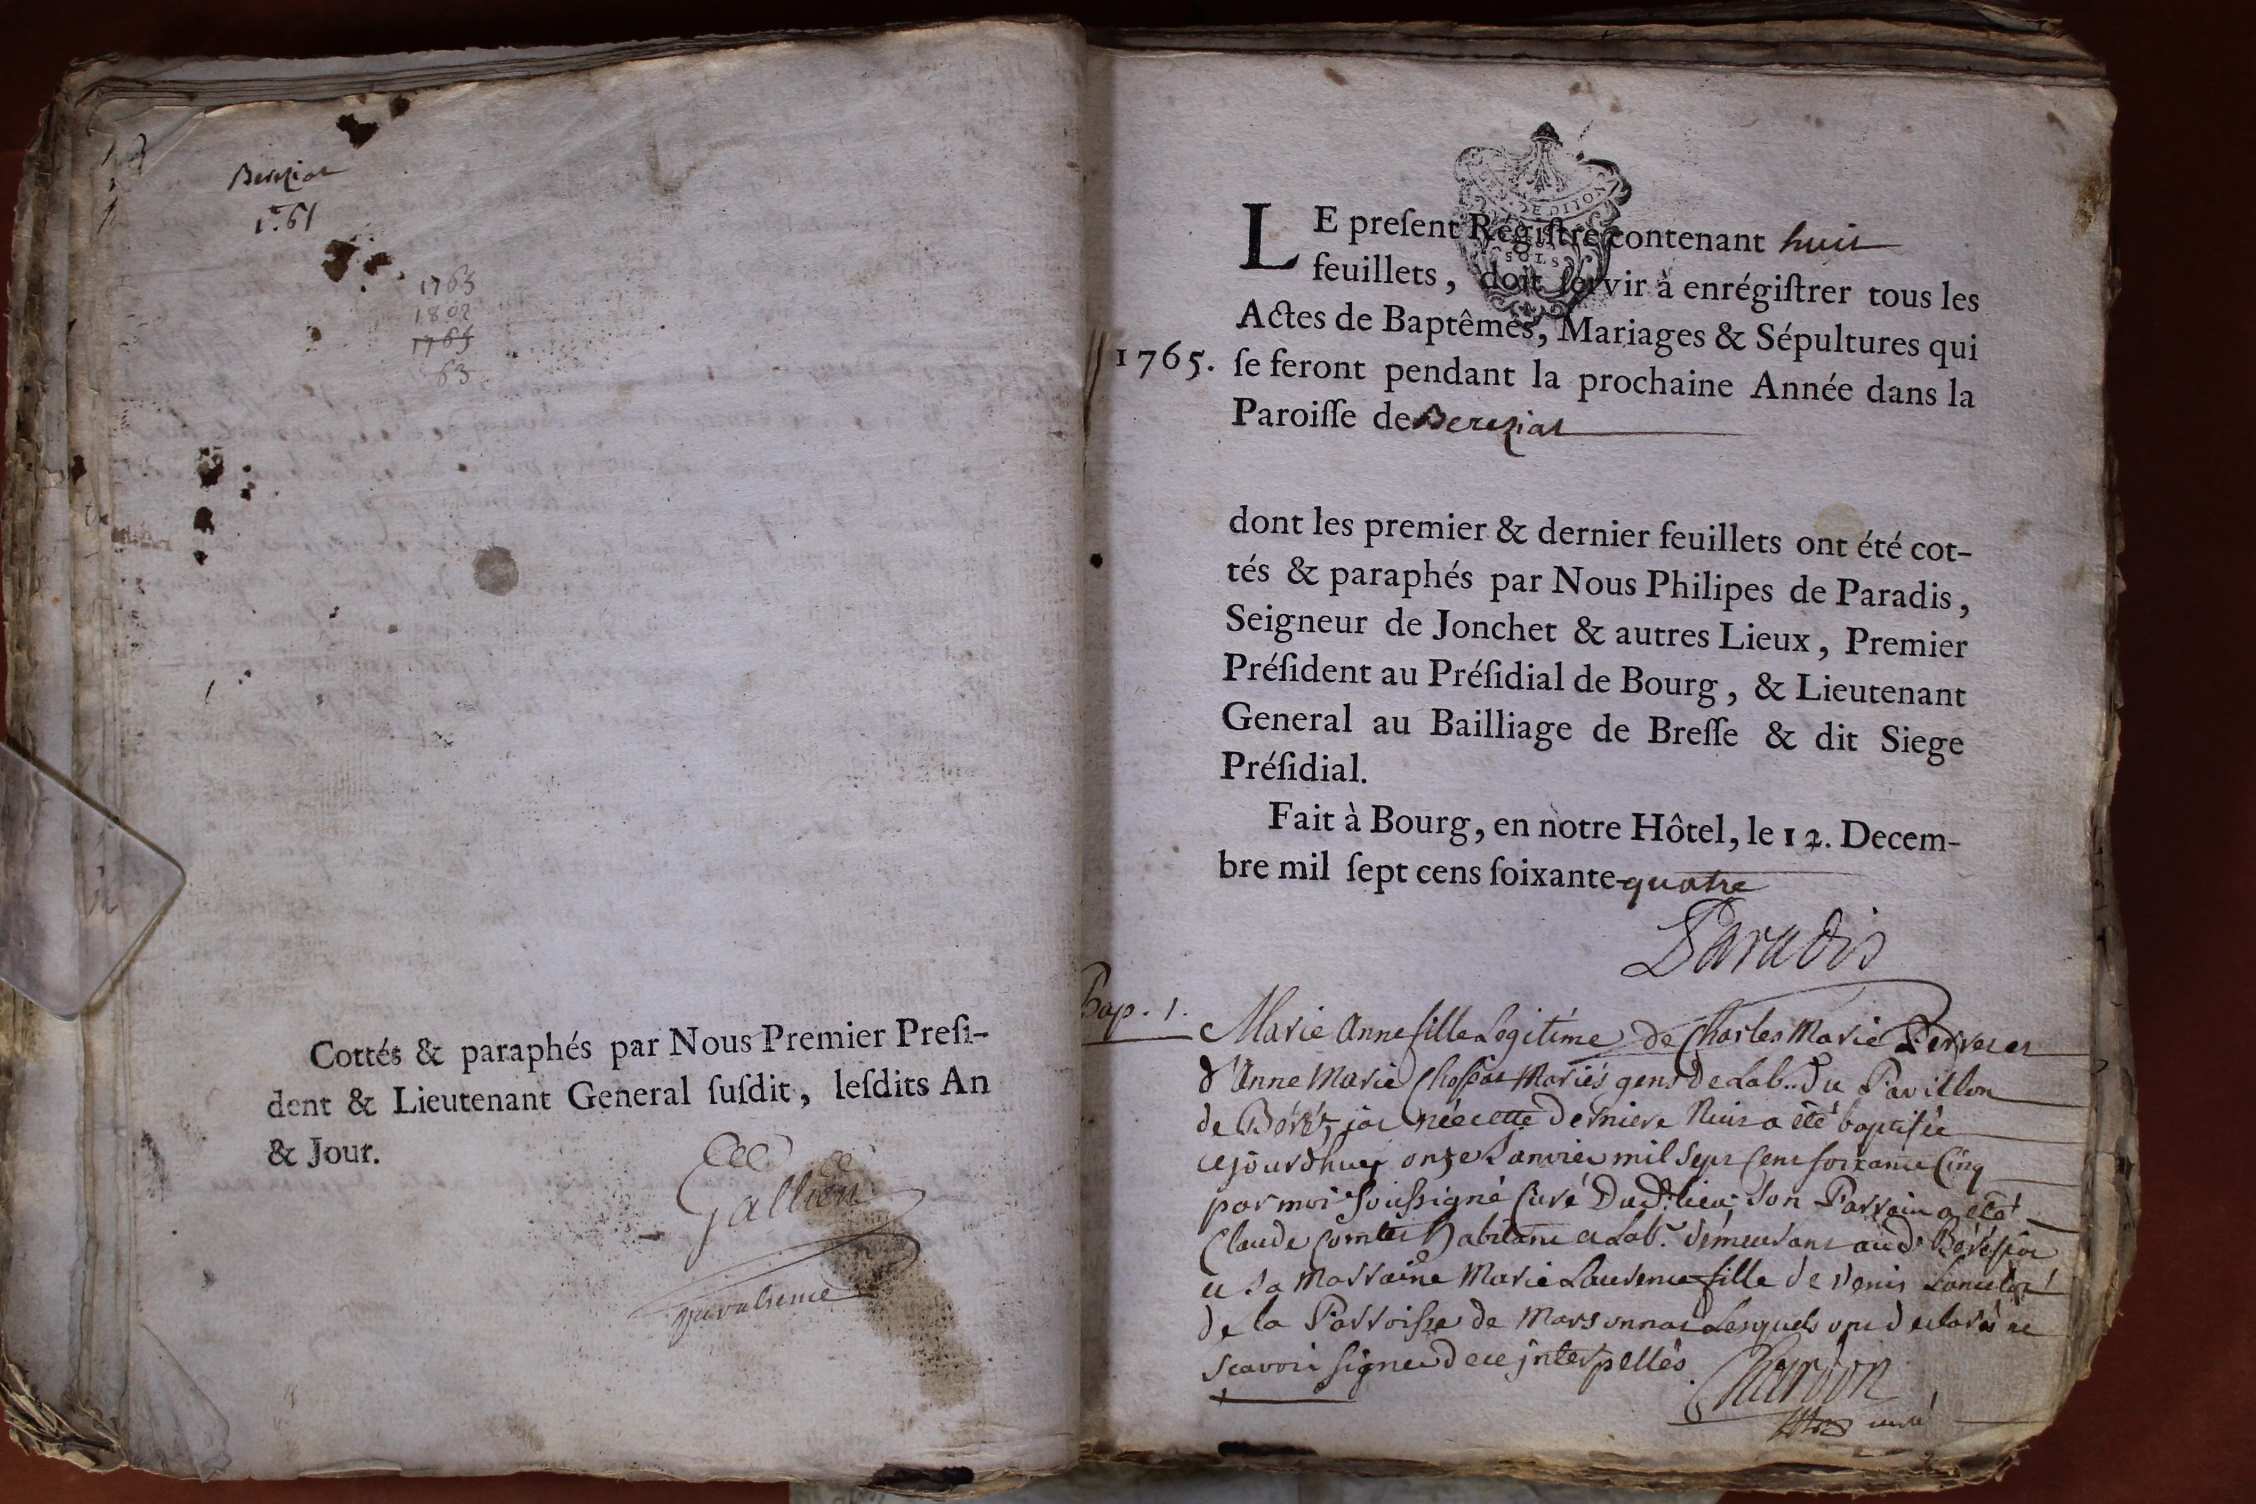 Bereziat
1761
1763
1802
1763
63
Cottés & paraphés par Nous Premier Preſi-
dent & Lieutenant General ſuſdit, leſdits An
& Jour.
Gallien
LE preſent Régiſtre contenant huit
feuillets, doit ſervir à enrégiſtrer tous les
Actes de Baptêmes, Mariages & Sépultures qui
1765. ſe feront pendant la prochaine Année dans la
Paroiſſe de Bereziat
dont les premier & dernier feuillets ont été cot-
tés & paraphés par Nous Philipes de Paradis,
Seigneur de Jonchet & autres Lieux, Premier
Préſident au Préſidial de Bourg, & Lieutenant
General au Bailliage de Breſſe & dit Siege
Préſidial.
Fait à Bourg, en notre Hôtel, le 12. Decem-
bre mil ſept cens ſoixante-quatre
Paradis
Bap. 1. Marie Anne fille Legitime de Charles Marie
d'Anne Marie mariés gens de Lab.. du Pavillon
de née cette derniere Nuit a été baptisée
cejourdhuy onze Janvier mil Sept Cent soixante Cinq
par moi Soussigné Curé Dud. lieu; Son Parrain a été
Claude Comte habitant et Lab.r demeurant aud.
et Sa Marraine Marie Laurence fille de Denis
de la Parroisse de Marsonnat Lesquels ont declarés ne
scavoir signer de ce interpellés.
Chardon
curé